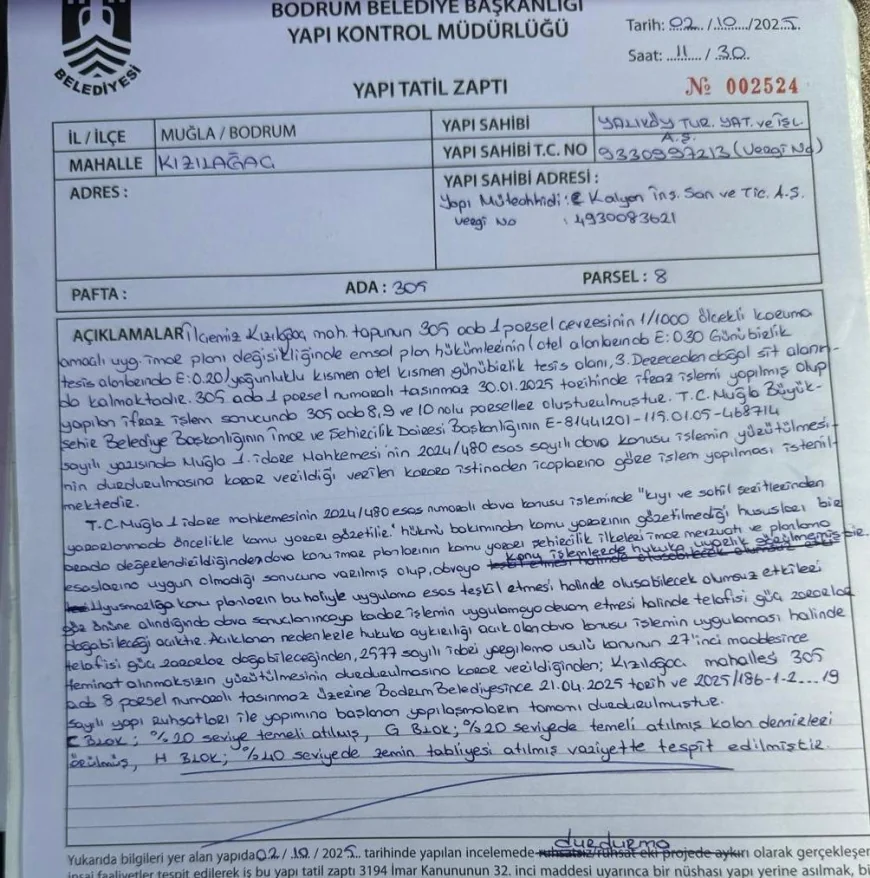 BODRUM BELEDİYE BAŞKANLIĞI
YAPI KONTROL MÜDÜRLÜĞÜ
Tarih: 02../10.../2025.
Saat: 11..../.30.
BELEDİYESİ
YAPI TATİL ZAPTI
№ 002524
İL / İLÇE MUĞLA / BODRUM
MAHALLE KIZILAĞAÇ
ADRES :
YAPI SAHİBİ YALIKÖY TUR. YAT. ve İŞL. A.Ş.
YAPI SAHİBİ T.C. NO 9330997213 (Vergi No)
YAPI SAHİBİ ADRESİ :
Yapı Müteahhidi: Kalyon İnş. San ve Tic. A.Ş.
Vergi No : 4930083621
PAFTA : ADA : 305 PARSEL : 8
AÇIKLAMALAR İlçemiz Kızılağaç mah. tapunun 305 ada 1 parsel çevresinin 1/1000 ölçekli koruma
amaçlı uyg. imar planı değişikliğinde emsal plan hükümlerinin (otel alanlarında E:0.30 Günübirlik
tesis alanlarında E:0.20) yoğunluklu kısmen otel kısmen günübirlik tesis alanı, 3. Dereceden doğal sit alanın-
da kalmaktadır. 305 ada 1 parsel numaralı taşınmaz 30.01.2025 tarihinde ifraz işlemi yapılmış olup
yapılan ifraz işlem sonucunda 305 ada 8,9 ve 10 nolu parseller oluşturulmuştur. T.C. Muğla Büyük-
şehir Belediye Başkanlığının İmar ve Şehircilik Dairesi Başkanlığının E-81441201-115.01.05-468714
sayılı yazısında Muğla 1. idare Mahkemesi'nin 2024/480 esas sayılı dava konusu işlemin yürütülmesi-
nin durdurulmasına karar verildiği verilen karara istinaden icaplarına göre işlem yapılması istenil-
mektedir.
T.C. Muğla 1 idare mahkemesinin 2024/480 esas numaralı dava konusu işleminde "kıyı ve sahil şeritlerinden
yararlanmada öncelikle kamu yararı gözetilir." hükmü bakımından kamu yararının gözetilmediği hususları bir
arada değerlendirildiğinden dava konu imar planlarının kamu yararı şehircilik ilkeleri imar mevzuatı ve planlama
esaslarına uygun olmadığı sonucuna varılmış olup, dava konu işlemlerde hukuka uyarlık görülmemiştir.
Uyuşmazlığa konu planların bu haliyle uygulama esas teşkil etmesi halinde oluşabilecek olumsuz etkileri
göz önüne alındığında dava sonuçlanıncaya kadar işlemin uygulamaya devam etmesi halinde telafisi güç zararlar
doğabileceği açıktır. Açıklanan nedenlerle hukuka aykırılığı açık olan dava konusu işlemin uygulaması halinde
telafisi güç zararlar doğabileceğinden, 2577 sayılı idari yargılama usulü kanunun 27'inci maddesince
teminat alınmaksızın yürütülmesinin durdurulmasına karar verildiğinden; Kızılağaç mahallesi 305
ada 8 parsel numaralı taşınmaz üzerine Bodrum Belediyesince 21.04.2025 tarih ve 2025/186-1-2....19
sayılı yapı ruhsatları ile yapımına başlanan yapılaşmaların tamamı durdurulmuştur.
C BLOK; %20 seviye temeli atılmış, G BLOK; %20 seviyede temeli atılmış kolon demirleri
örülmüş, H BLOK; %40 seviyede zemin tabliyesi atılmış vaziyette tespit edilmiştir.
durdurma
Yukarıda bilgileri yer alan yapıda 02 / 10 / 2025. tarihinde yapılan incelemede ruhsatsız/ruhsat eki projede aykırı olarak gerçekleşen
inşai faaliyetler tespit edilerek iş bu yapı tatil zaptı 3194 İmar Kanununun 32. inci maddesi uyarınca bir nüshası yapı yerine asılmak, bi